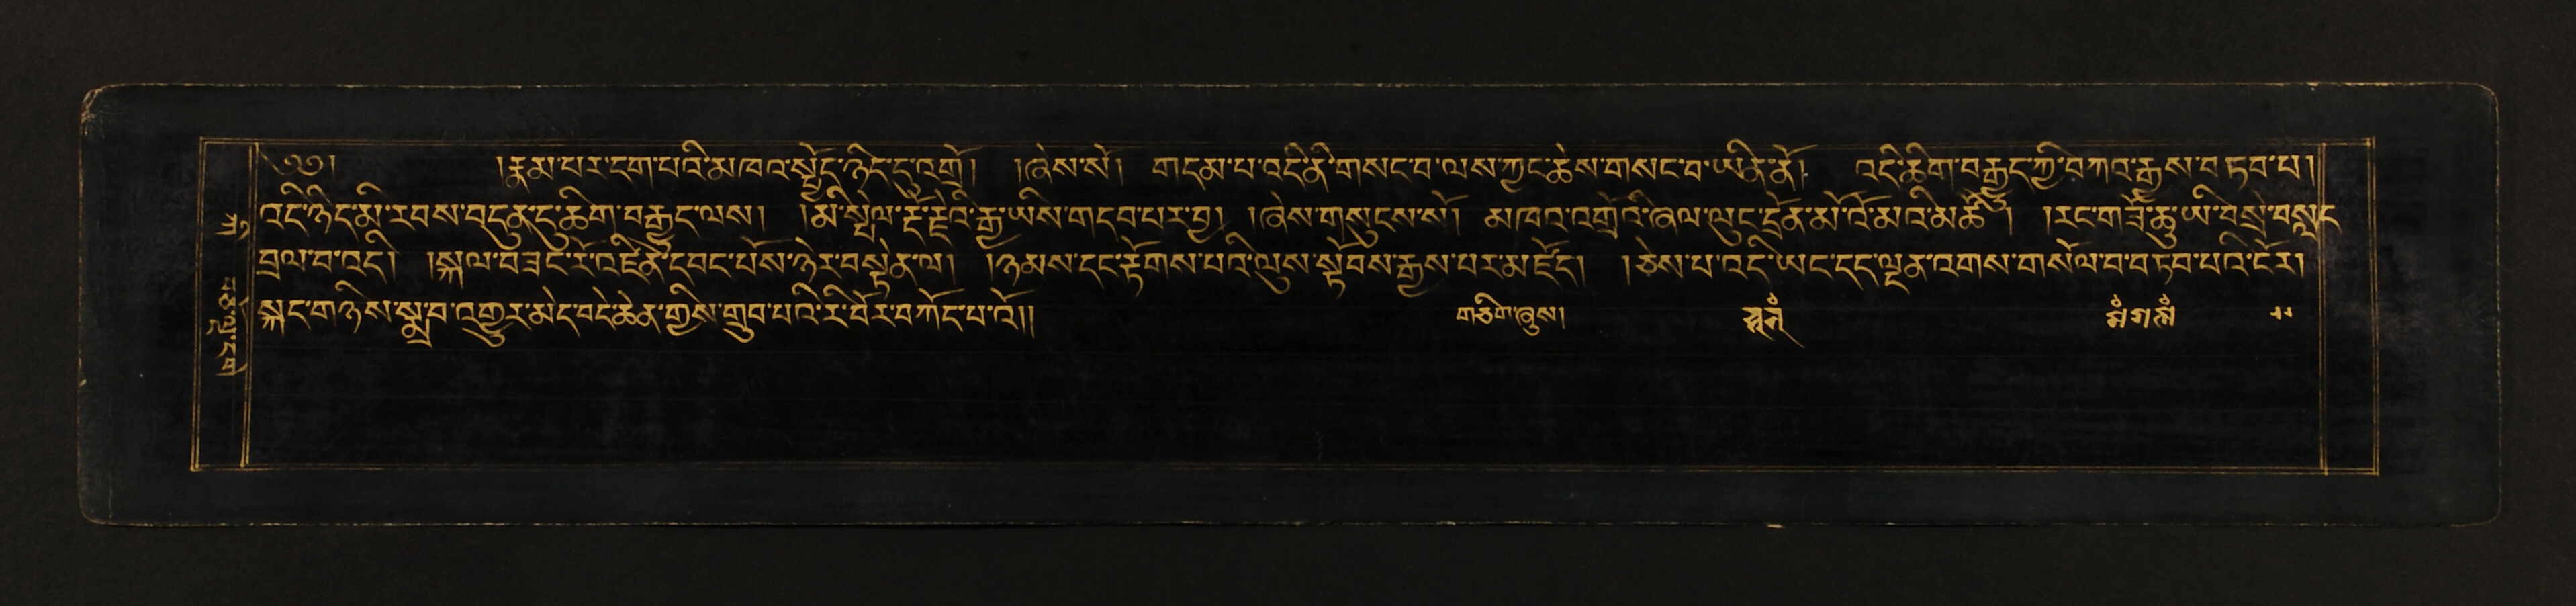 ༄༅། །རྣམ་པར་དག་པའི་མཁའ་སྤྱོད་ཉིད་དུ་འགྲོ། །ཞེས་སོ། གདམ་པ་འདི་ནི་གསང་བ་ལས་ཀྱང་ཆེས་གསང་བ་ཡིན་ནོ། འདི་ཚིག་བརྒྱུད་ཀྱི་བཀའ་རྒྱས་བཏབ་པ།
འདི་ཉིད་མི་རབས་བདུན་དུ་ཚིག་བརྒྱུད་ལས། །མི་སྤེལ་རྡོ་རྗེའི་རྒྱ་ཡིས་གདབ་པར་བྱ། །ཞེས་གསུངས་སོ། མཁའ་འགྲོའི་ཞལ་ལུང་དྲོན་མོ་འོ་མའི་མཚོ། །རང་གཟོ་ཆུ་ཡི་བསྲེ་བསླད
བྲལ་བ་འདི། །སྐལ་བཟང་རོ་འཛིན་དབང་པོས་ཉེར་བསྟེན་ལ། །ཉམས་དང་རྟོགས་པའི་ལུས་སྟོབས་རྒྱས་པར་མཛོད། །ཅེས་པ་འདི་ཡང་དད་ལྡན་འགས་གསོལ་བ་བཏབ་པའི་ངོར།
སྐད་གཉིས་སྨྲ་བ་འགྱུར་མེད་བདེ་ཆེན་གྱིས་གྲུབ་པའི་རི་བོར་བཀོད་པ་འོ།། གཅིག་ཞུས།